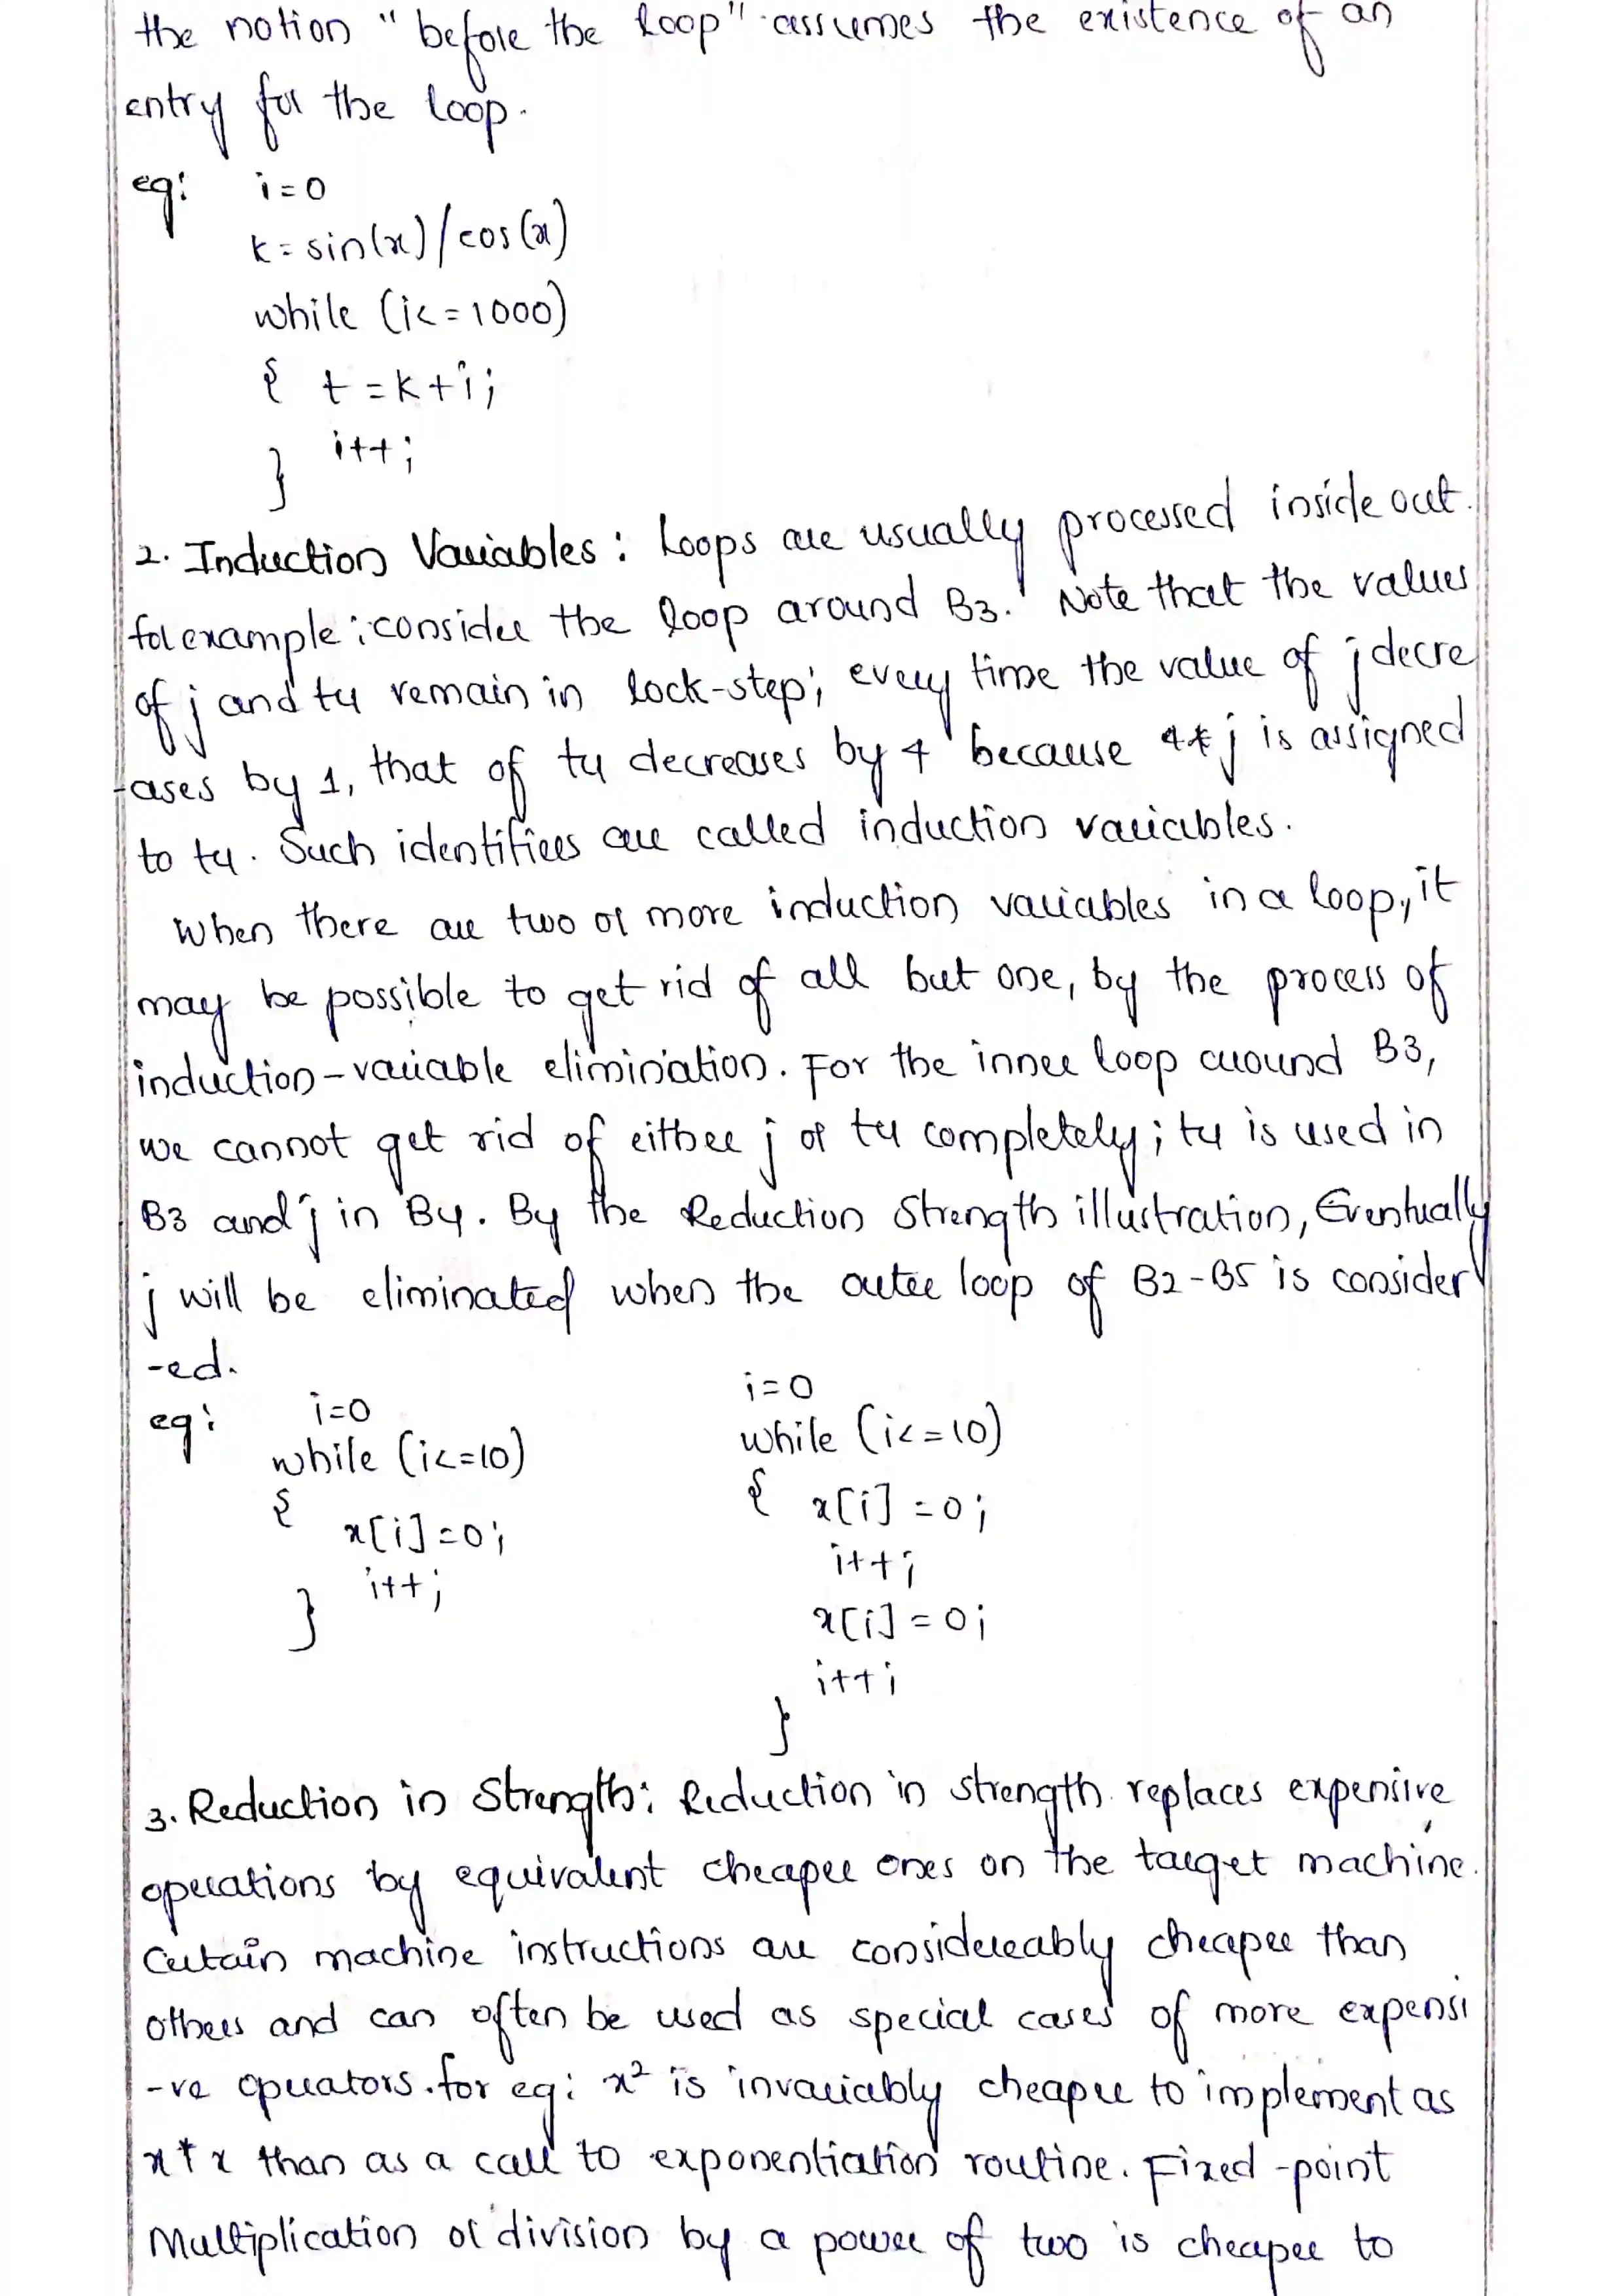 the notion "before the loop" assumes the existence of an
entry for the loop.
eg: i=0
k=sin(x)/cos(x)
while (i<=1000)
{ t=k+i;
i++;
}
2. Induction Variables: Loops are usually processed inside out.
for example: consider the loop around B3. Note that the values
of j and t4 remain in lock-step; every time the value of j decre
-ases by 1, that of t4 decreases by 4 because 4*j is assigned
to t4. Such identifiers are called induction variables.
When there are two or more induction variables in a loop, it
may be possible to get rid of all but one, by the process of
induction-variable elimination. For the inner loop around B3,
we cannot get rid of either j or t4 completely; t4 is used in
B3 and j in B4. By the Reduction Strength illustration, Eventually
j will be eliminated when the outer loop of B2-B5 is consider
-ed.
eg: i=0 i=0
while (i<=10) while (i<=10)
{ { x[i]=0;
x[i]=0; i++;
i++; x[i]=0;
} i++;
}
3. Reduction in Strength: Reduction in strength replaces expensive
operations by equivalent cheaper ones on the target machine.
Certain machine instructions are considereably cheaper than
others and can often be used as special cases of more expensi
-ve operators. for eg: x² is invariably cheaper to implement as
x*x than as a call to exponentiation routine. Fixed-point
Multiplication or division by a power of two is cheaper to